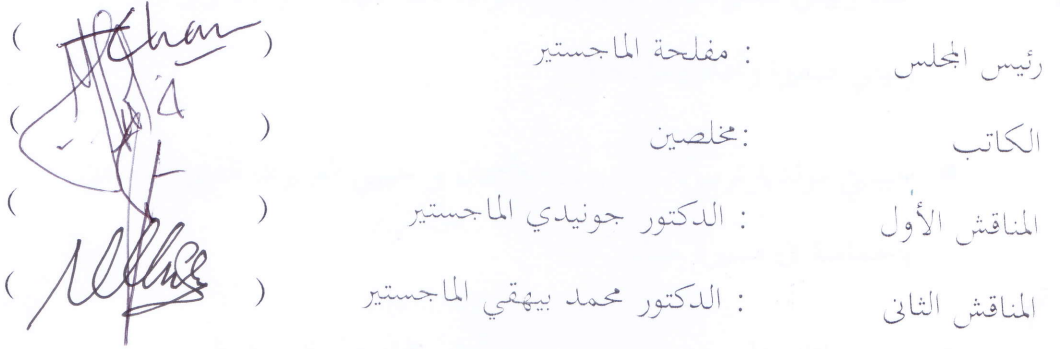 رئيس المجلس : مفلحة الماجستير ( )
الكاتب :مخلصين ( )
المناقش الأول : الدكتور جونيدي الماجستير ( )
المناقش الثانى : الدكتور محمد بيهقي الماجستير ( )